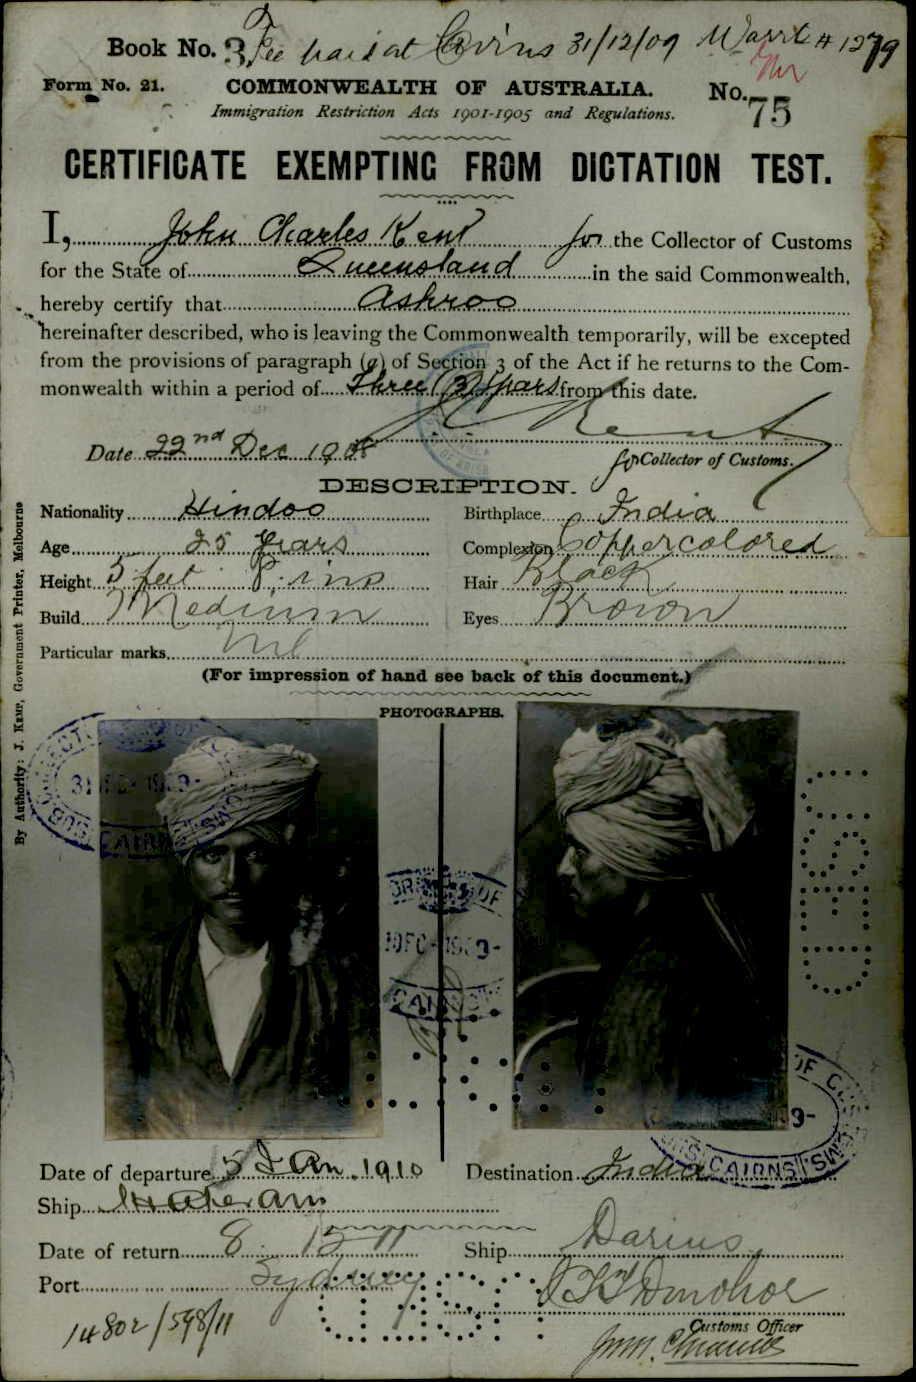 Book No. 3 Fee paid at Cairns 31/12/09 Warrt # 1279
Form No. 21. COMMONWEALTH OF AUSTRALIA. No. 75
Immigration Restriction Acts 1901-1905 and Regulations.
CERTIFICATE EXEMPTING FROM DICTATION TEST.
I, John Charles Kent for the Collector of Customs
for the State of Queensland in the said Commonwealth,
hereby certify that Ashroo
hereinafter described, who is leaving the Commonwealth temporarily, will be excepted
from the provisions of paragraph (a) of Section 3 of the Act if he returns to the Com-
monwealth within a period of Three (3) years from this date.
J C Kent
Date 22nd Dec 190
for Collector of Customs.
DESCRIPTION.
Nationality Hindoo Birthplace India
Age 25 years Complexion Coppercolored
Height 5 feet 8 ins Hair Black
Build Medium Eyes Brown
Particular marks Nil
(For impression of hand see back of this document.)
PHOTOGRAPHS.
By Authority: J. KEMP, Government Printer, Melbourne
CAIRNS
CAIRNS
CAIRNS
Date of departure 5 Jan. 1910 Destination India
Ship Mataram
Date of return 8 12 11 Ship Darius
Port Sydney Donohoe
Customs Officer
14802/598/11